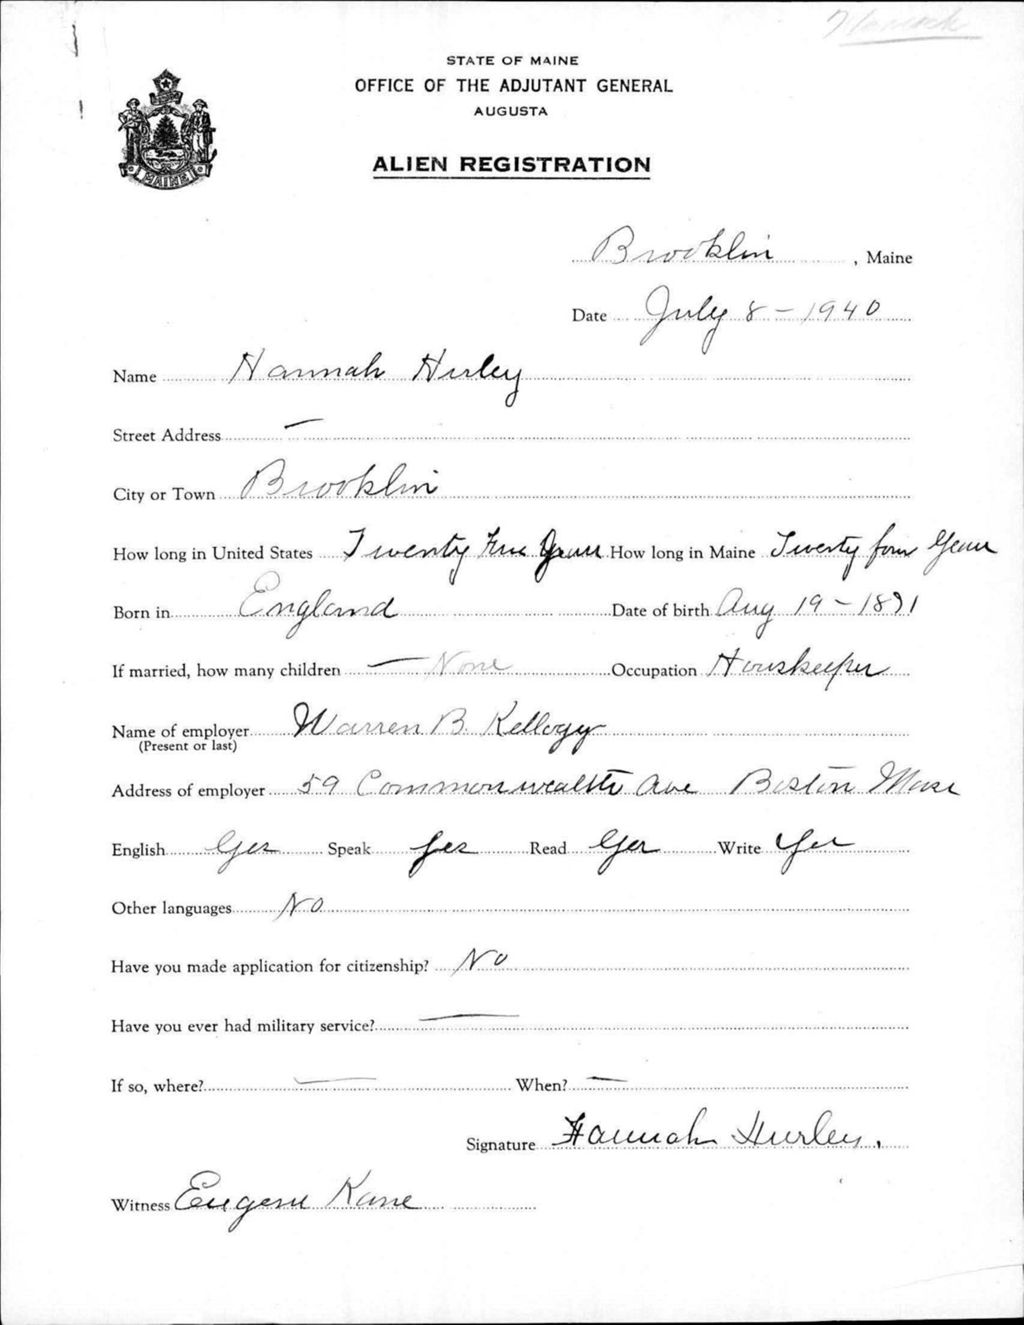 Hancock
STATE OF MAINE
OFFICE OF THE ADJUTANT GENERAL
AUGUSTA
MAINE
ALIEN REGISTRATION
Brooklin, Maine
Date July 8 - 1940
Name Hannah Hurley
Street Address —
City or Town Brooklin
How long in United States Twenty Five Years How long in Maine Twenty four Years
Born in England Date of birth Aug 19 - 1891
If married, how many children — None Occupation Houskeeper
Name of employer Warren B. Kellogg
(Present or last)
Address of employer 59 Commonwealth Ave Boston Mass
English Yes Speak Yes Read Yes Write Yes
Other languages No
Have you made application for citizenship? No
Have you ever had military service? —
If so, where? — When? —
Signature Hannah Hurley.
Witness Eugene Kane